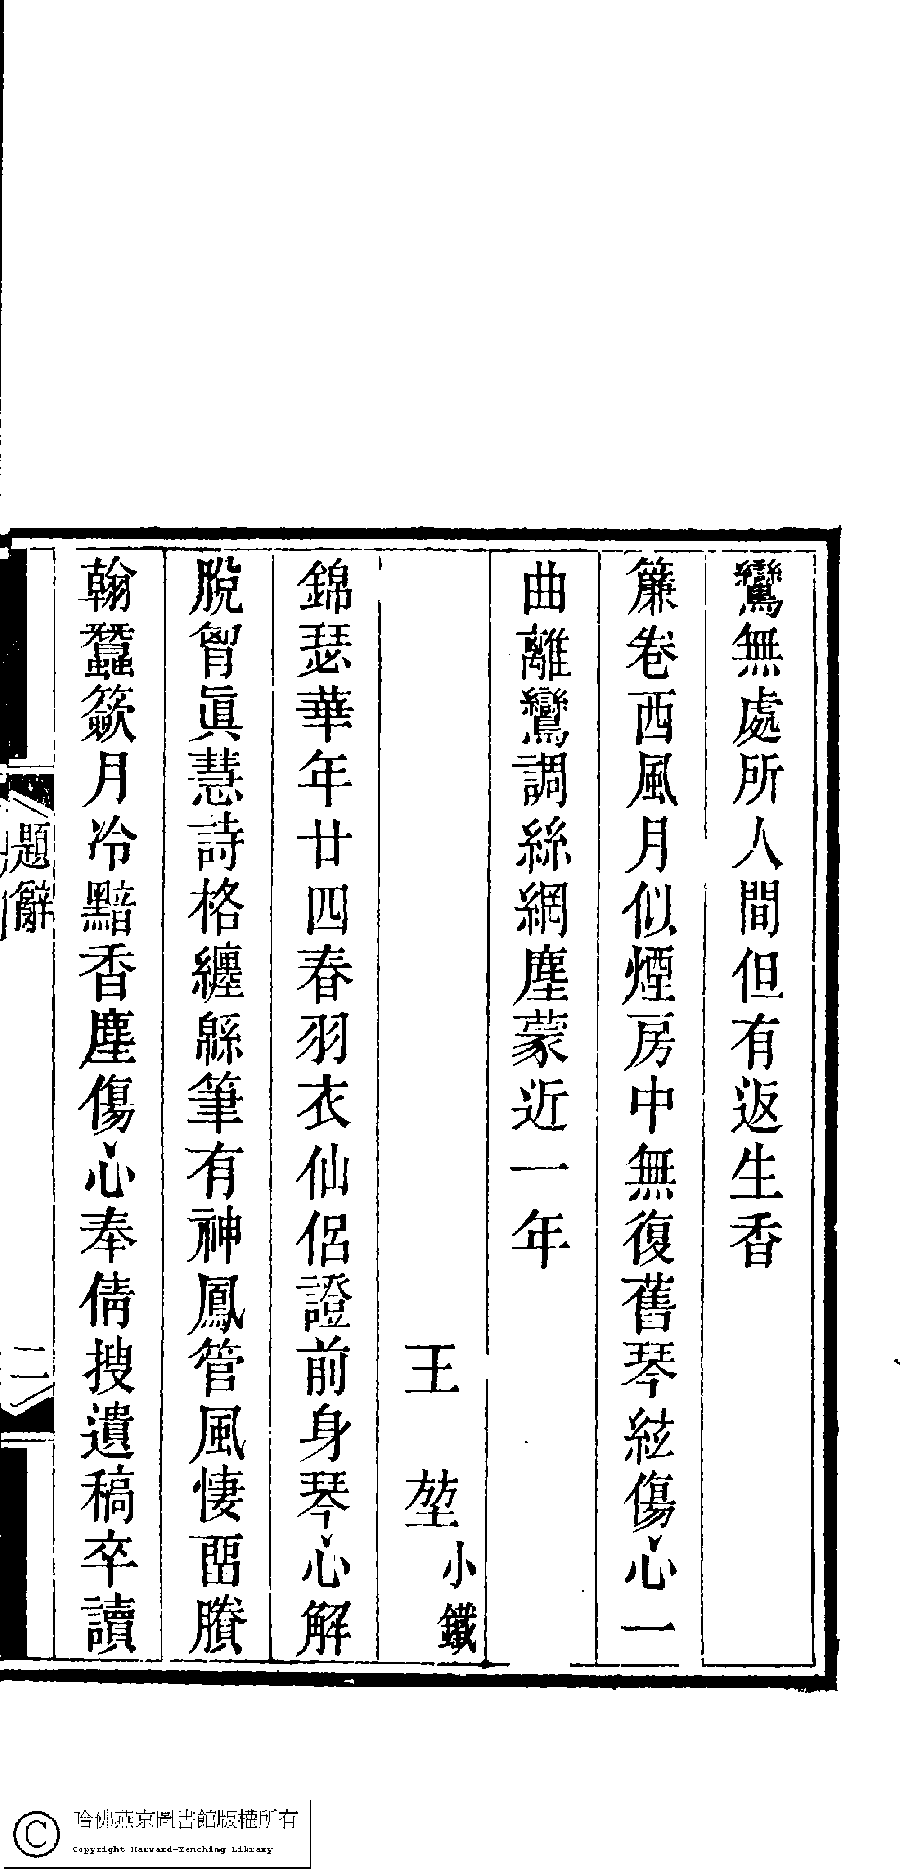 鸞無處所人間但有返生香
簾卷西風月似煙房中無復舊琴絃傷心一
曲離鸞調絲網塵蒙近一年
王堃小鐵
錦瑟華年廿四春羽衣仙侶證前身琴心解
脫曾眞慧詩格纏緜筆有神鳳管風悽畱賸
翰蠶簌月冷黯香塵傷心奉倩搜遺稿卒讀
題辭
二
哈佛燕京圖書館版權所有
Copyright Harvard-Yenching Library